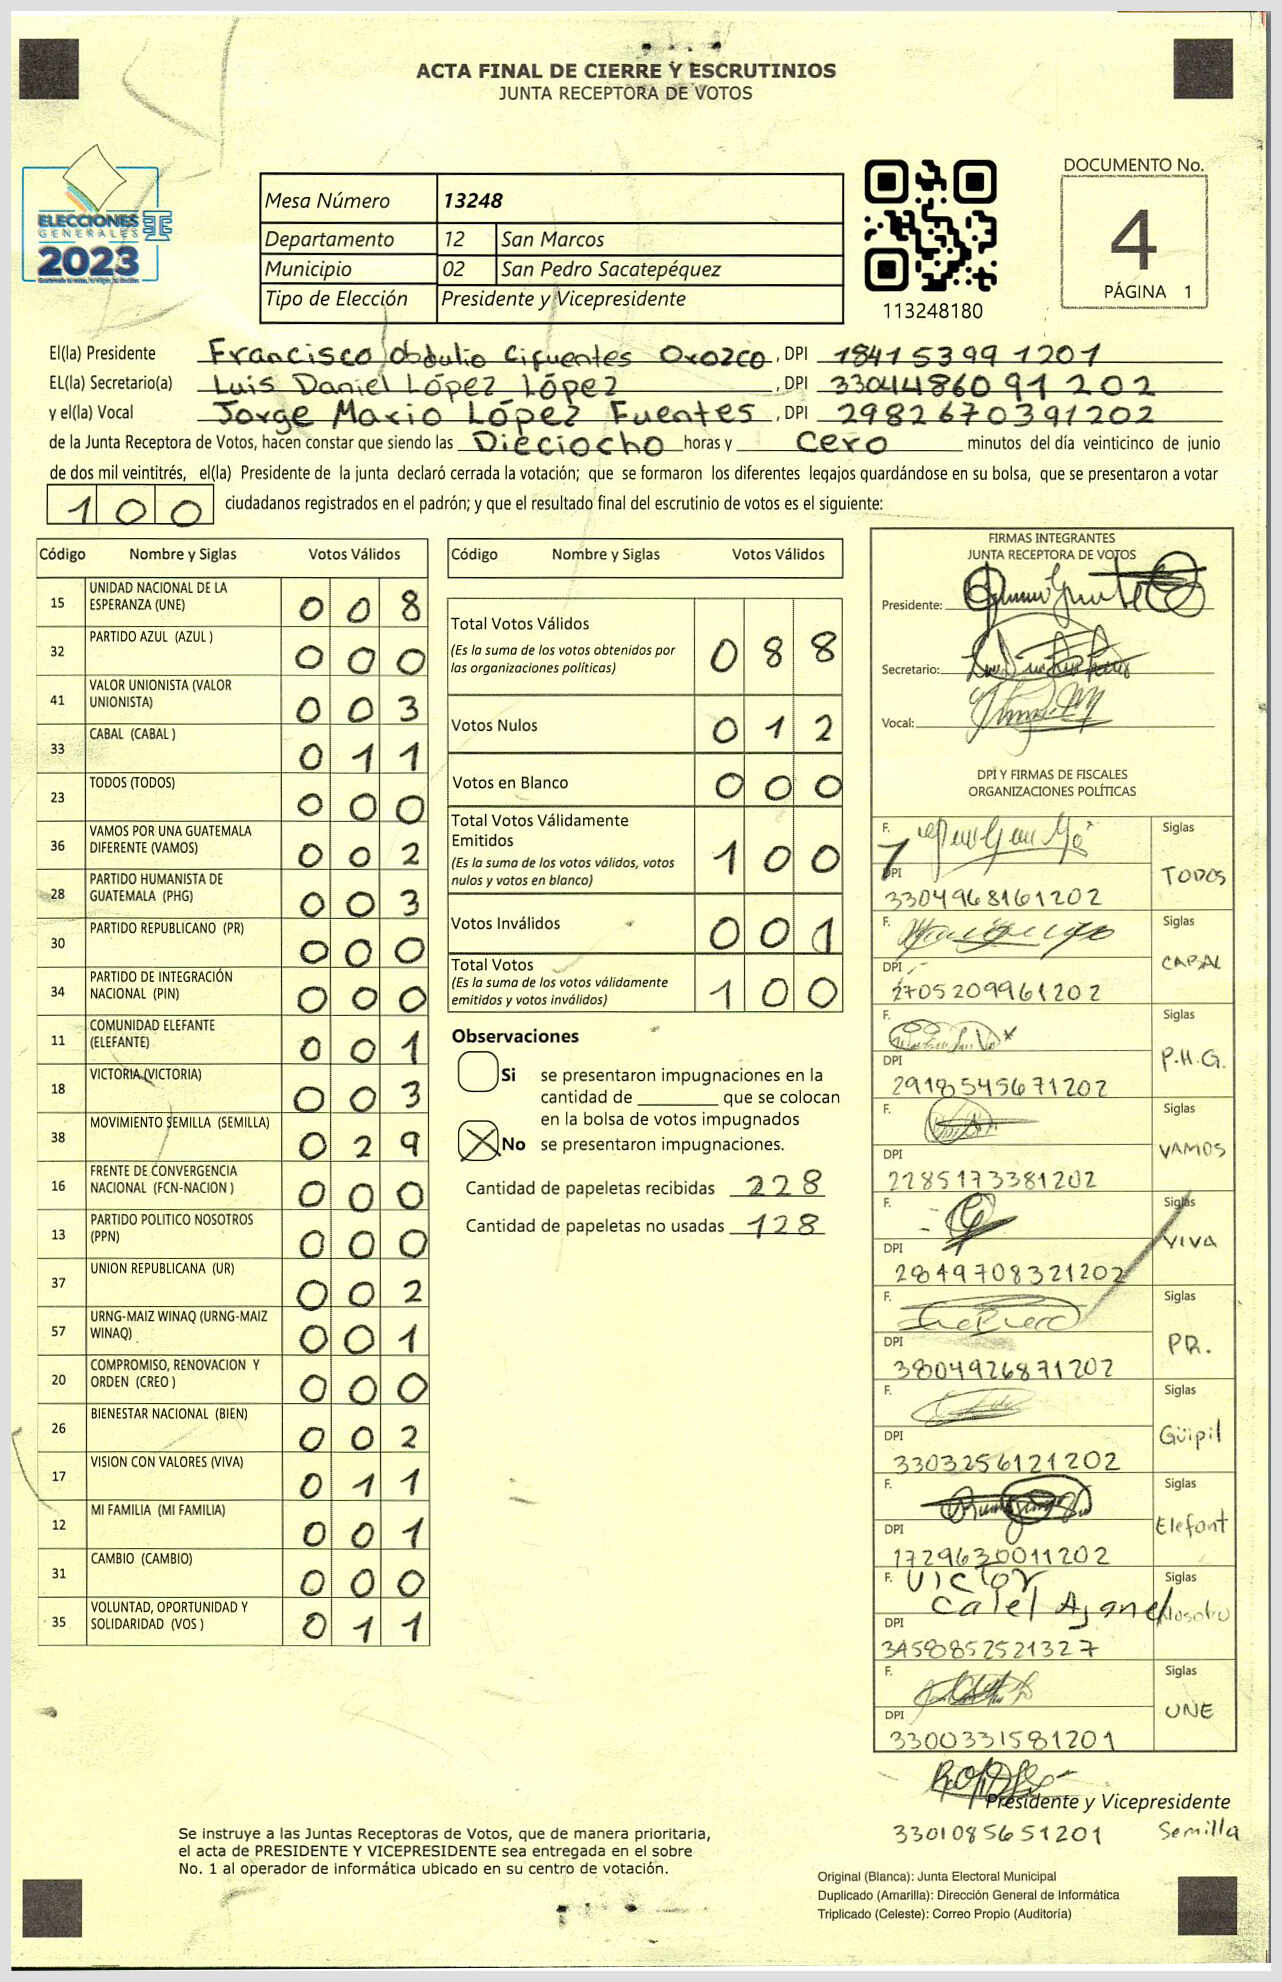 ACTA FINAL DE CIERRE Y ESCRUTINIOS
JUNTA RECEPTORA DE VOTOS
ELECCIONES
GENERALES
2023
Mesa Número 13248
Departamento 12 San Marcos
Municipio 02 San Pedro Sacatepéquez
Tipo de Elección Presidente y Vicepresidente
113248180
DOCUMENTO No.
4
PÁGINA 1
El(la) Presidente Francisco Obdulio Cifuentes Orozco, DPI 1841539991201
EL(la) Secretario(a) Luis Daniel López López, DPI 3304486091202
y el(la) Vocal Jorge Mario López Fuentes, DPI 2982670391202
de la Junta Receptora de Votos, hacen constar que siendo las Dieciocho horas y Cero minutos del día veinticinco de junio
de dos mil veintitrés, el(la) Presidente de la junta declaró cerrada la votación; que se formaron los diferentes legajos guardándose en su bolsa, que se presentaron a votar
100 ciudadanos registrados en el padrón; y que el resultado final del escrutinio de votos es el siguiente:
Código Nombre y Siglas Votos Válidos
15 UNIDAD NACIONAL DE LA ESPERANZA (UNE) 008
32 PARTIDO AZUL (AZUL ) 000
41 VALOR UNIONISTA (VALOR UNIONISTA) 003
33 CABAL (CABAL ) 011
23 TODOS (TODOS) 000
36 VAMOS POR UNA GUATEMALA DIFERENTE (VAMOS) 002
28 PARTIDO HUMANISTA DE GUATEMALA (PHG) 003
30 PARTIDO REPUBLICANO (PR) 000
34 PARTIDO DE INTEGRACIÓN NACIONAL (PIN) 000
11 COMUNIDAD ELEFANTE (ELEFANTE) 001
18 VICTORIA (VICTORIA) 003
38 MOVIMIENTO SEMILLA (SEMILLA) 029
16 FRENTE DE CONVERGENCIA NACIONAL (FCN-NACION ) 000
13 PARTIDO POLITICO NOSOTROS (PPN) 000
37 UNION REPUBLICANA (UR) 002
57 URNG-MAIZ WINAQ (URNG-MAIZ WINAQ) 001
20 COMPROMISO, RENOVACION Y ORDEN (CREO ) 000
26 BIENESTAR NACIONAL (BIEN) 002
17 VISION CON VALORES (VIVA) 011
12 MI FAMILIA (MI FAMILIA) 001
31 CAMBIO (CAMBIO) 000
35 VOLUNTAD, OPORTUNIDAD Y SOLIDARIDAD (VOS ) 011
Código Nombre y Siglas Votos Válidos
Total Votos Válidos 088
(Es la suma de los votos obtenidos por
las organizaciones políticas)
Votos Nulos 012
Votos en Blanco 000
Total Votos Válidamente
Emitidos 100
(Es la suma de los votos válidos, votos
nulos y votos en blanco)
Votos Inválidos 001
Total Votos 100
(Es la suma de los votos válidamente
emitidos y votos inválidos)
Observaciones
Si se presentaron impugnaciones en la
cantidad de ________ que se colocan
en la bolsa de votos impugnados
No se presentaron impugnaciones.
Cantidad de papeletas recibidas 228
Cantidad de papeletas no usadas 128
FIRMAS INTEGRANTES
JUNTA RECEPTORA DE VOTOS
Presidente:
Secretario:
Vocal:
DPI Y FIRMAS DE FISCALES
ORGANIZACIONES POLÍTICAS
F. Siglas
DPI TODOS
3304968161202
F. Siglas
DPI CABAL
2705209961202
F. Siglas
DPI P.H.G.
2918545671202
F. Siglas
DPI VAMOS
2285173381202
F. Siglas
DPI VIVA
2849708321202
F. Siglas
DPI PR.
3804926871202
F. Siglas
DPI Güipil
3303256121202
F. Siglas
DPI Elefant
1729630011202
F. Victor Siglas
Calel Ajanel
DPI
3458852521327
F. Siglas
DPI UNE
3300331581201
Presidente y Vicepresidente
3301085651201 Semilla
Se instruye a las Juntas Receptoras de Votos, que de manera prioritaria,
el acta de PRESIDENTE Y VICEPRESIDENTE sea entregada en el sobre
No. 1 al operador de informática ubicado en su centro de votación.
Original (Blanca): Junta Electoral Municipal
Duplicado (Amarilla): Dirección General de Informática
Triplicado (Celeste): Correo Propio (Auditoría)